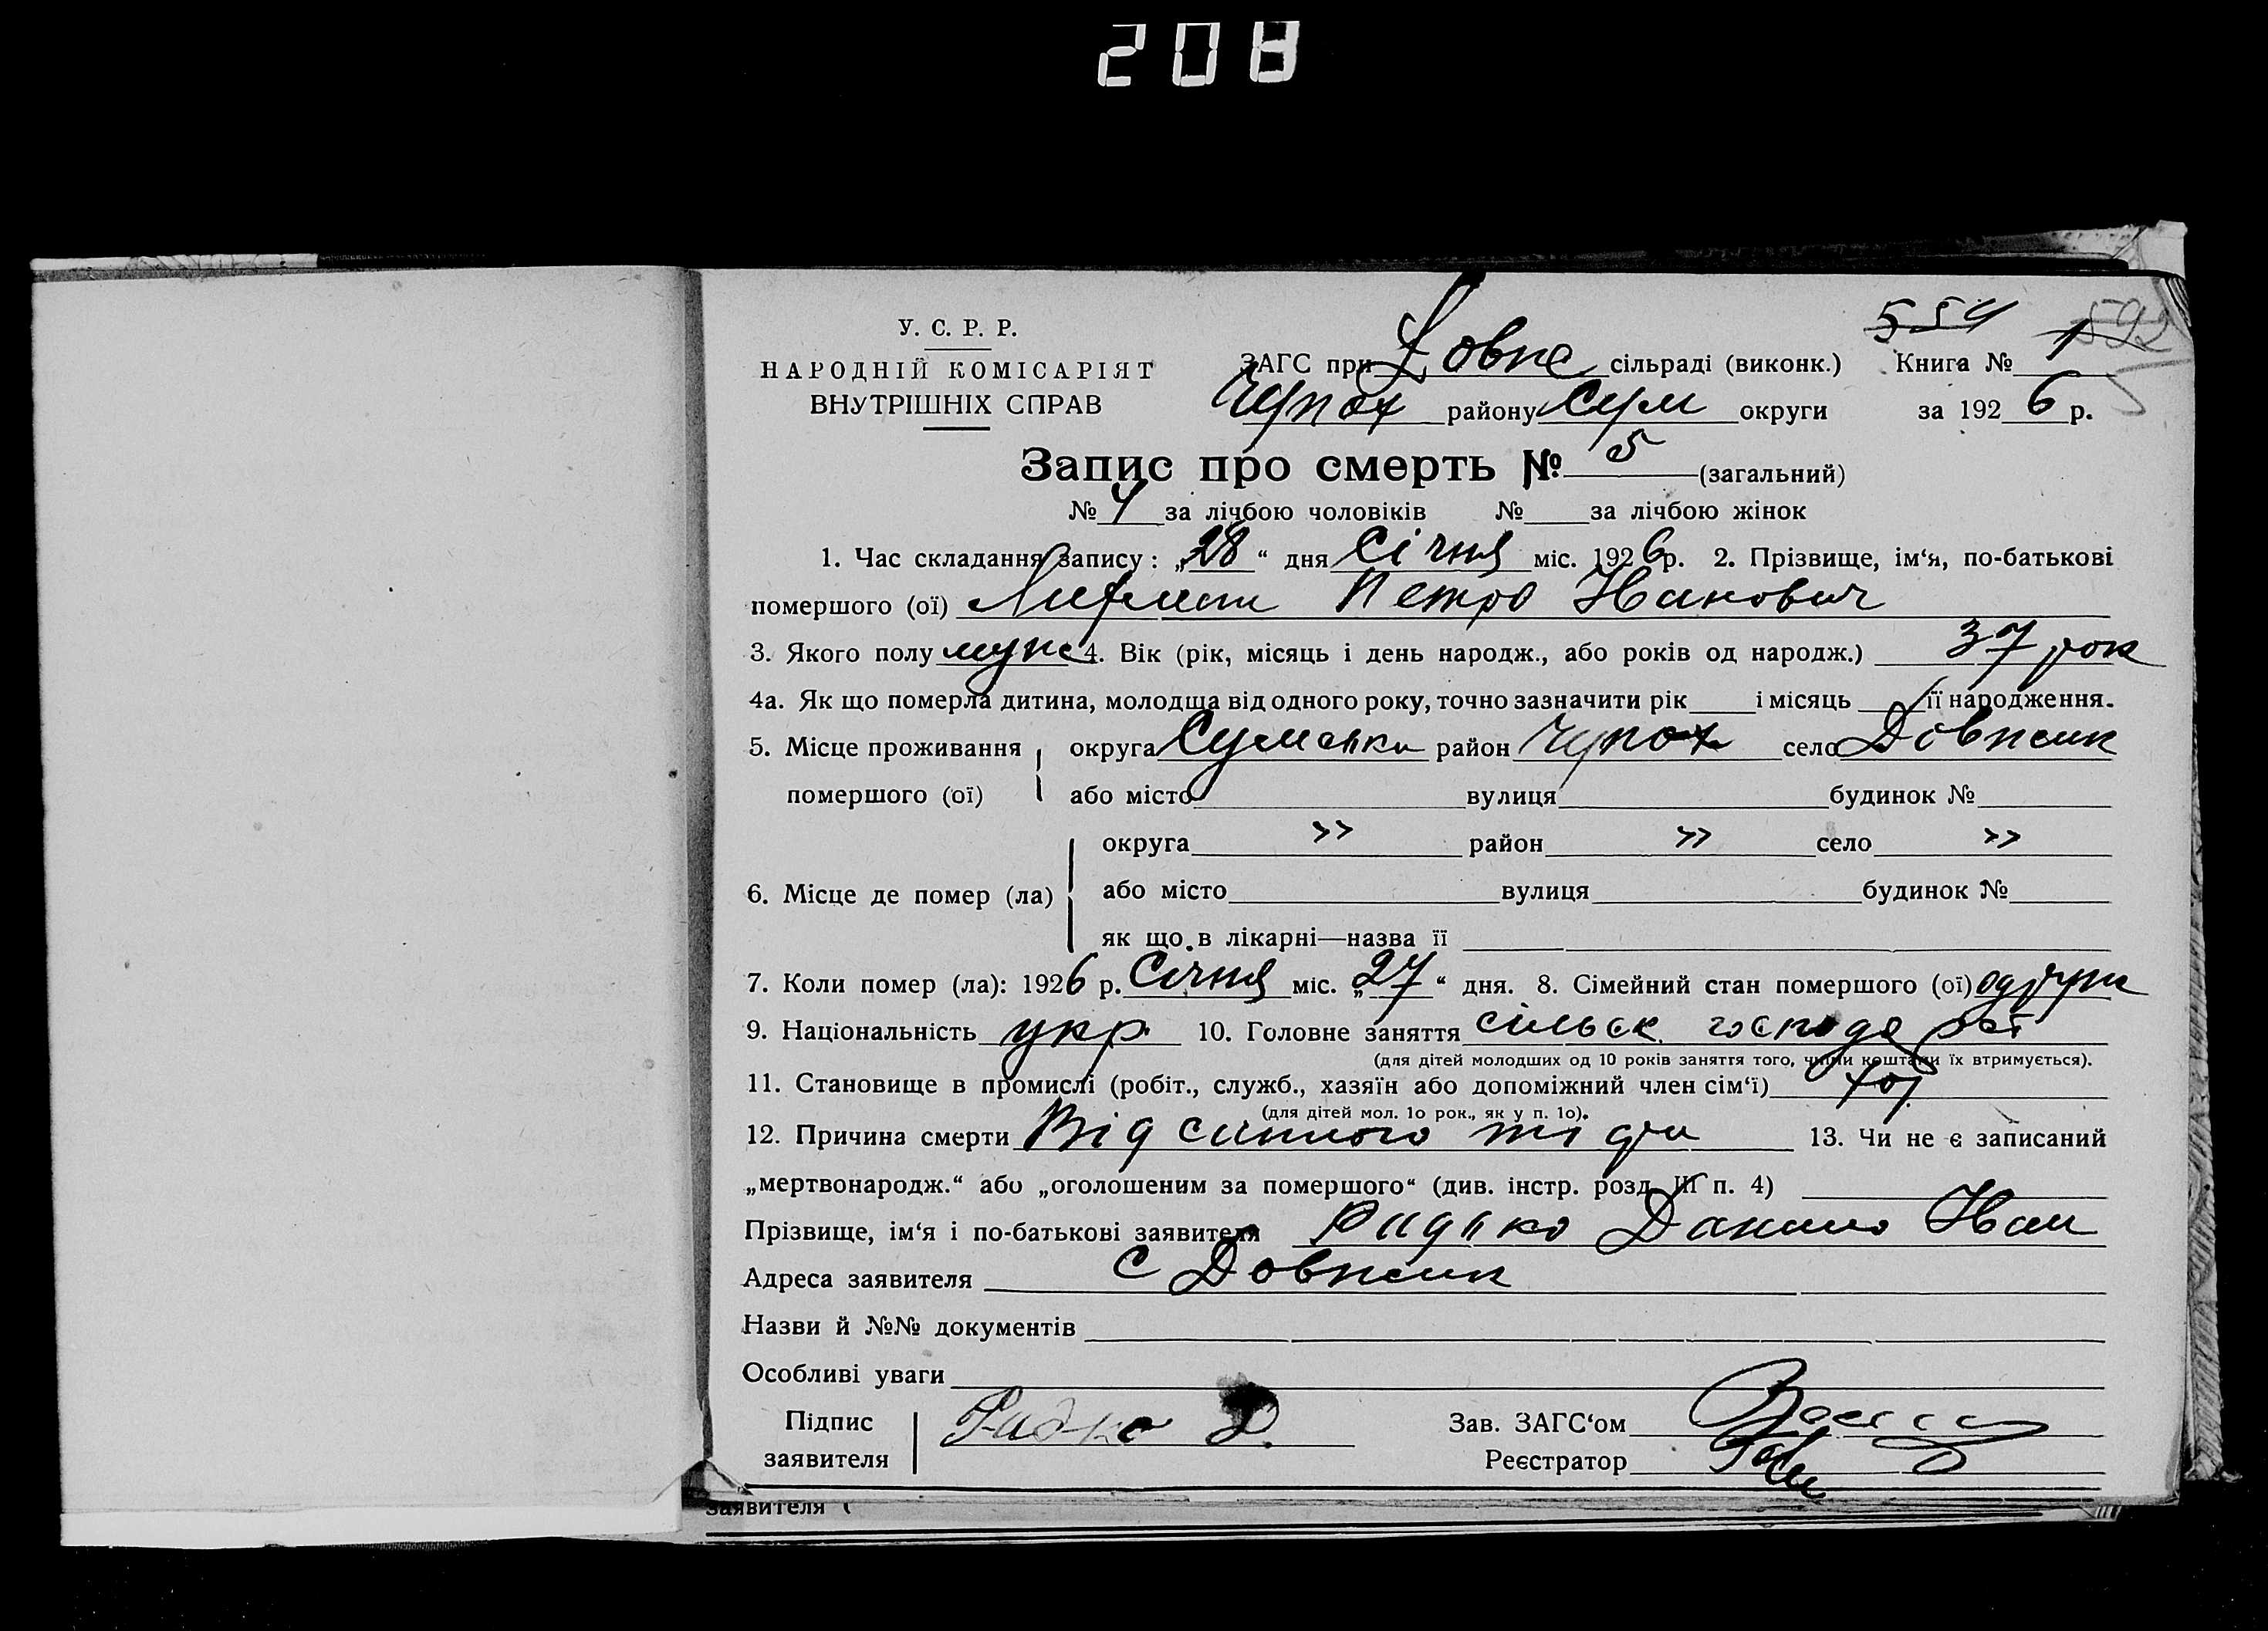 208
554 592
У. С. Р. Р.
НАРОДНІЙ КОМІСАРІЯТ
ВНУТРІШНІХ СПРАВ
ЗАГС при Довж сільраді (виконк.) Книга № 1
Чупах району Сум округи за 1926 р.
Запис про смерть № 5 (загальний)
№ 4 за лічбою чоловіків № за лічбою жінок
1. Час складання запису: „28“ дня Січня міс. 1926 р. 2. Прізвище, ім‘я, по-батькові
помершого (ої) Петро Иванович
3. Якого полу муж 4. Вік (рік, місяць і день народж., або років од народж.) 37 рок
4а. Як що померла дитина, молодша від одного року, точно зазначити рік і місяць її народження.
5. Місце проживання помершого (ої) округа Сумськи район Чупах село Довжик
або місто вулиця будинок №
6. Місце де помер (ла) округа » район » село »
або місто вулиця будинок №
як що в лікарні—назва її
7. Коли помер (ла): 1926 р. Січня міс. „27“ дня. 8. Сімейний стан помершого (ої) одруж
9. Національність укр. 10. Головне заняття сільск. господарст
(для дітей молодших од 10 років заняття того, чиїми коштами їх втримується).
11. Становище в промислі (робіт., служб., хазяїн або допоміжний член сім‘ї) хоз
(для дітей мол. 1о рок., як у п. 1о).
12. Причина смерти Від сипного тіфа 13. Чи не є записаний
„мертвонародж.“ або „оголошеним за помершого“ (див. інстр. розд. III п. 4)
Прізвище, ім‘я і по-батькові заявителя Радько Данило Иван
Адреса заявителя с Довжик
Назви й №№ документів
Особливі уваги
Підпис заявителя Радко Д.
Зав. ЗАГС‘ом
Реєстратор
заявителя